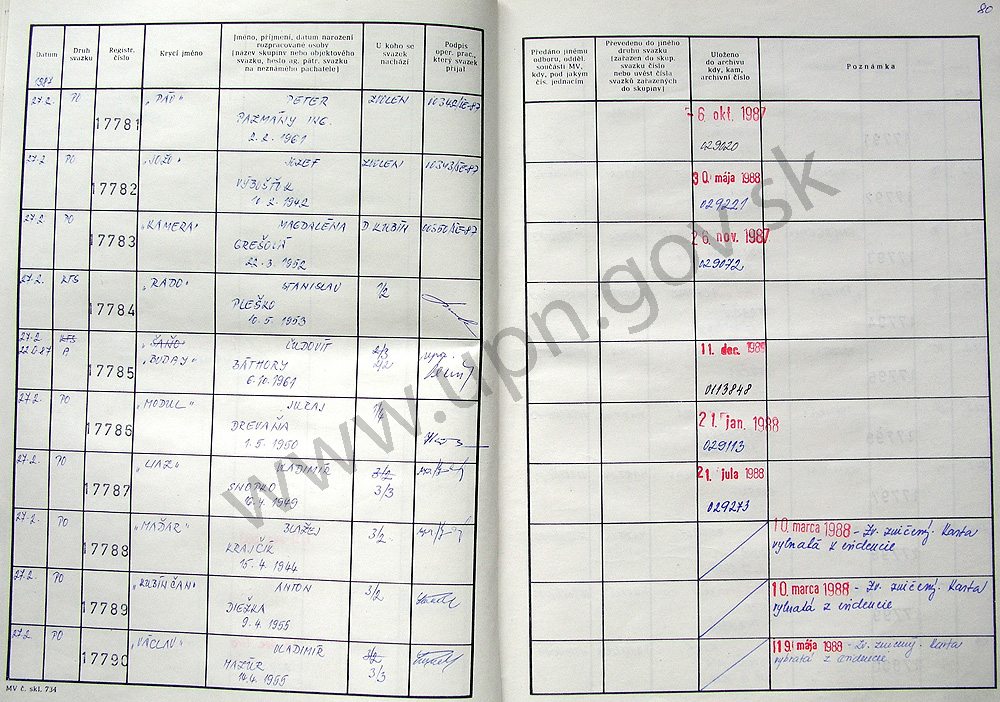 80
Datum
Druh svazku
Registr. číslo
Krycí jméno
Jméno, příjmení, datum narození
rozpracované osoby
(název skupiny nebo objektového
svazku, heslo ag. pátr. svazku
na neznámého pachatele)
U koho se
svazek
nachází
Podpis
oper. prac.,
který svazek
přijal
Předáno jinému
odboru, odděl.
součásti MV,
kdy, pod jakým
čís. jednacím
Převedeno do jiného
druhu svazku
(zařazen do skup.
svazku číslo
nebo uvést čísla
svazků zařazených
do skupiny)
Uloženo
do archivu
kdy, kam,
archivní číslo
Poznámka
1987
27.2. PO 17781 "PÁV" PETER
PAZMÁNY ING.
2.2.1961
- 6. okt. 1987
029020
27.2. PO 17782 "JOŽO" JOZEF
10.2.1942
30. mája 1988
029221
27.2. PO 17783 "KAMERA" MAGDALÉNA D KUBÍN
GREŠOVÁ
22.3.1952
26. nov. 1987
029072
27.2. KTS 17784 "RADO" STANISLAV 1/2
PLEŠKO
10.5.1953
27.2. KTS 17785 "ŠAŇO" ĽUDOVÍT 2/3
A "BUDAY" BÁTHORY 2/2
6.10.1961
11. dec. 1989
0113848
27.2. PO 17786 "MODUL" JURAJ 1/4
DREVAŇA
1.5.1950
21. jan. 1988
029113
27.2. PO 17787 "LIAZ" VLADIMÍR 3/2
SNOPKO 3/3
21. jula 1988
029273
27.2. PO 17788 "MAĎAR" BLAŽEJ 3/2
KRAJČÍK
15.4.1944
10. marca 1988 - Zv. zničený. Karta
vybratá z evidencie
27.2. PO 17789 "KUBÍNČAN" ANTON 3/2
DIEŽKA
9.4.1955
10. marca 1988 - Zv. zničený. Karta
vybratá z evidencie
27.2. PO 17790 "VÁCLAV" VLADIMÍR 3/2
MAZÚR 3/3
14.4.1955
19. mája 1988 - Zv. zničený. Karta
vybratá z evidencie
MV č. skl. 734
www.upn.gov.sk